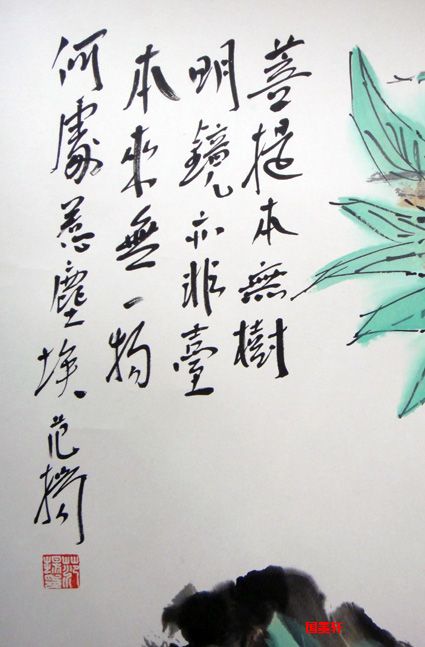 菩提本無樹
明鏡亦非臺
本來無一物
何處惹塵埃 范揚
国墨轩